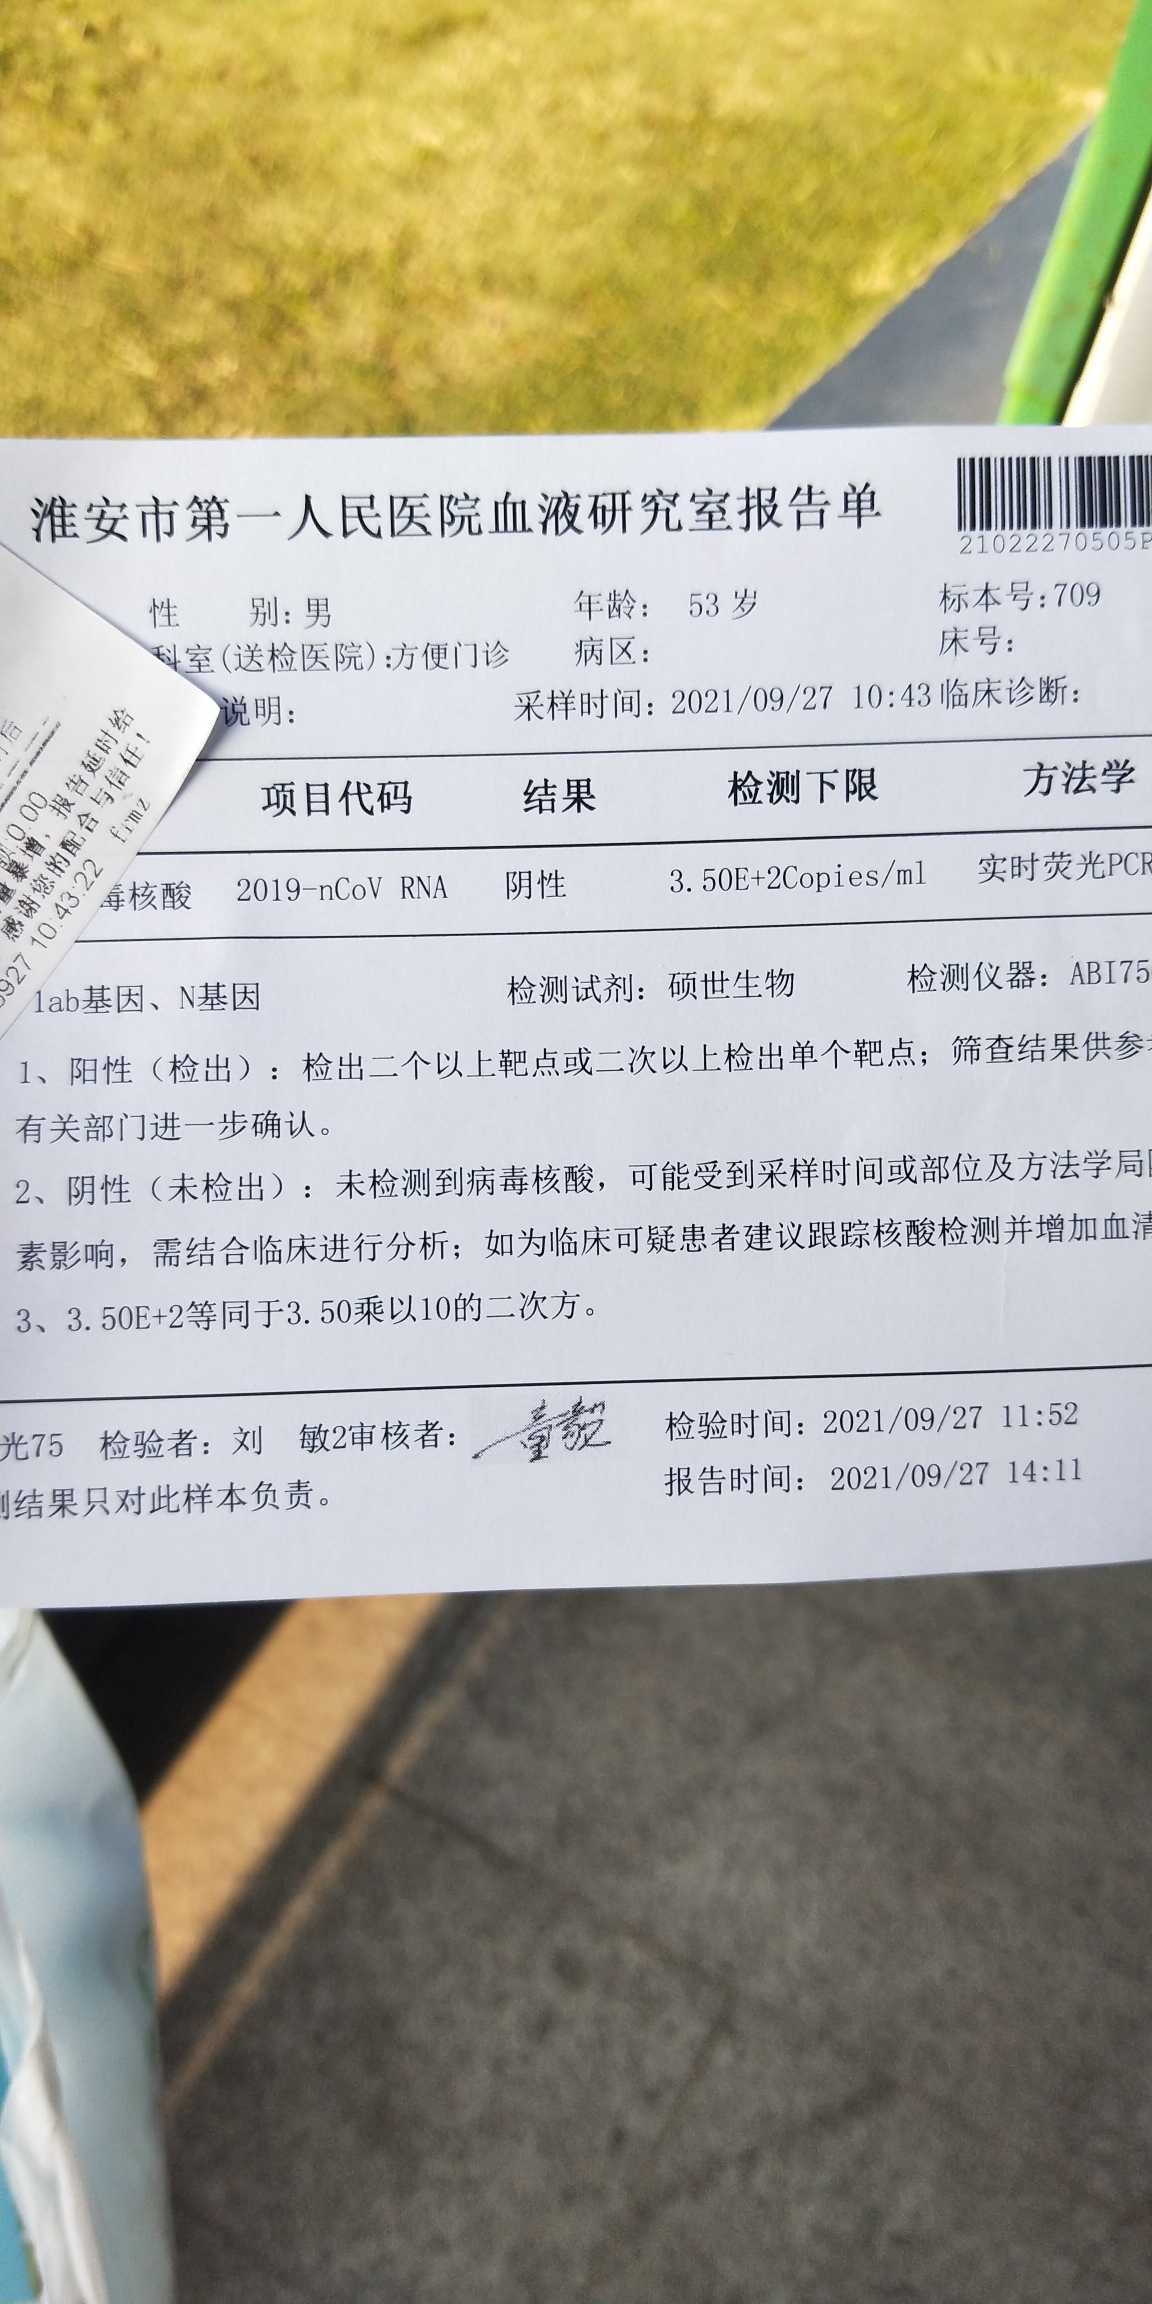 淮安市第一人民医院血液研究室报告单
21022270505P
性 别: 男 年龄: 53 岁 标本号:709
科室(送检医院):方便门诊 病区: 床号:
说明: 采样时间: 2021/09/27 10:43 临床诊断:
项目代码 结果 检测下限 方法学
毒核酸 2019-nCoV RNA 阴性 3.50E+2Copies/ml 实时荧光PCR
1ab基因、N基因 检测试剂: 硕世生物 检测仪器: ABI75
1、阳性（检出）: 检出二个以上靶点或二次以上检出单个靶点; 筛查结果供参
有关部门进一步确认。
2、阴性（未检出）: 未检测到病毒核酸, 可能受到采样时间或部位及方法学局
素影响, 需结合临床进行分析; 如为临床可疑患者建议跟踪核酸检测并增加血清
3、3.50E+2等同于3.50乘以10的二次方。
光75 检验者: 刘 敏2审核者: 童毅 检验时间: 2021/09/27 11:52
测结果只对此样本负责。 报告时间: 2021/09/27 14:11
时后
:0.00
量暴增, 报告延时给
感谢您的配合与信任!
0927 10:43:22 fjmz